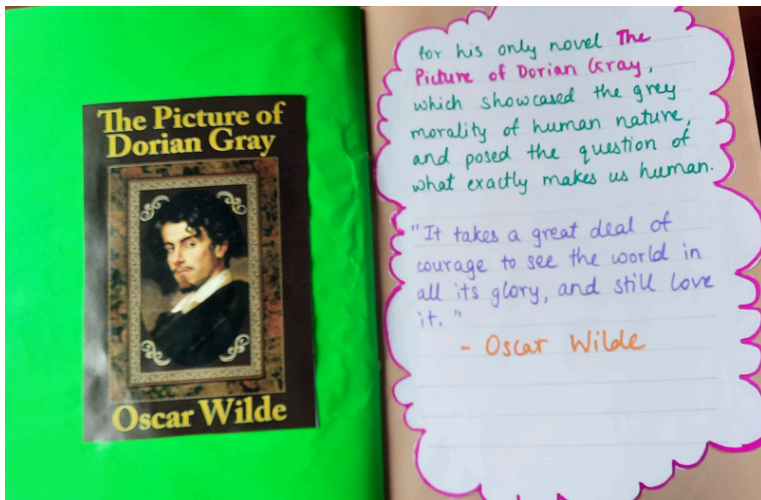 The Picture of
Dorian Gray
Oscar Wilde
for his only novel The
Picture of Dorian Gray,
which showcased the grey
morality of human nature,
and posed the question of
what exactly makes us human.
"It takes a great deal of
courage to see the world in
all its glory, and still love
it."
- Oscar Wilde